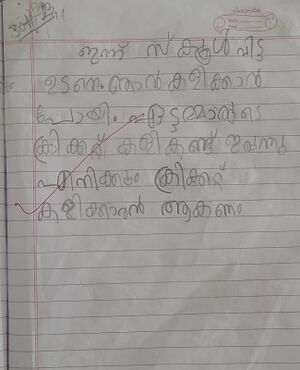 classmate
ഇന്ന് സ്കൂൾ വിട്ട
ഉടനെ ഞാൻ കളിക്കാൻ
പോയി. ഏട്ടന്മാരുടെ
ക്രിക്കറ്റ് കളി കണ്ട് ഇരുന്നു
എനിക്കും ക്രിക്കറ്റ്
കളിക്കാരൻ ആകണം